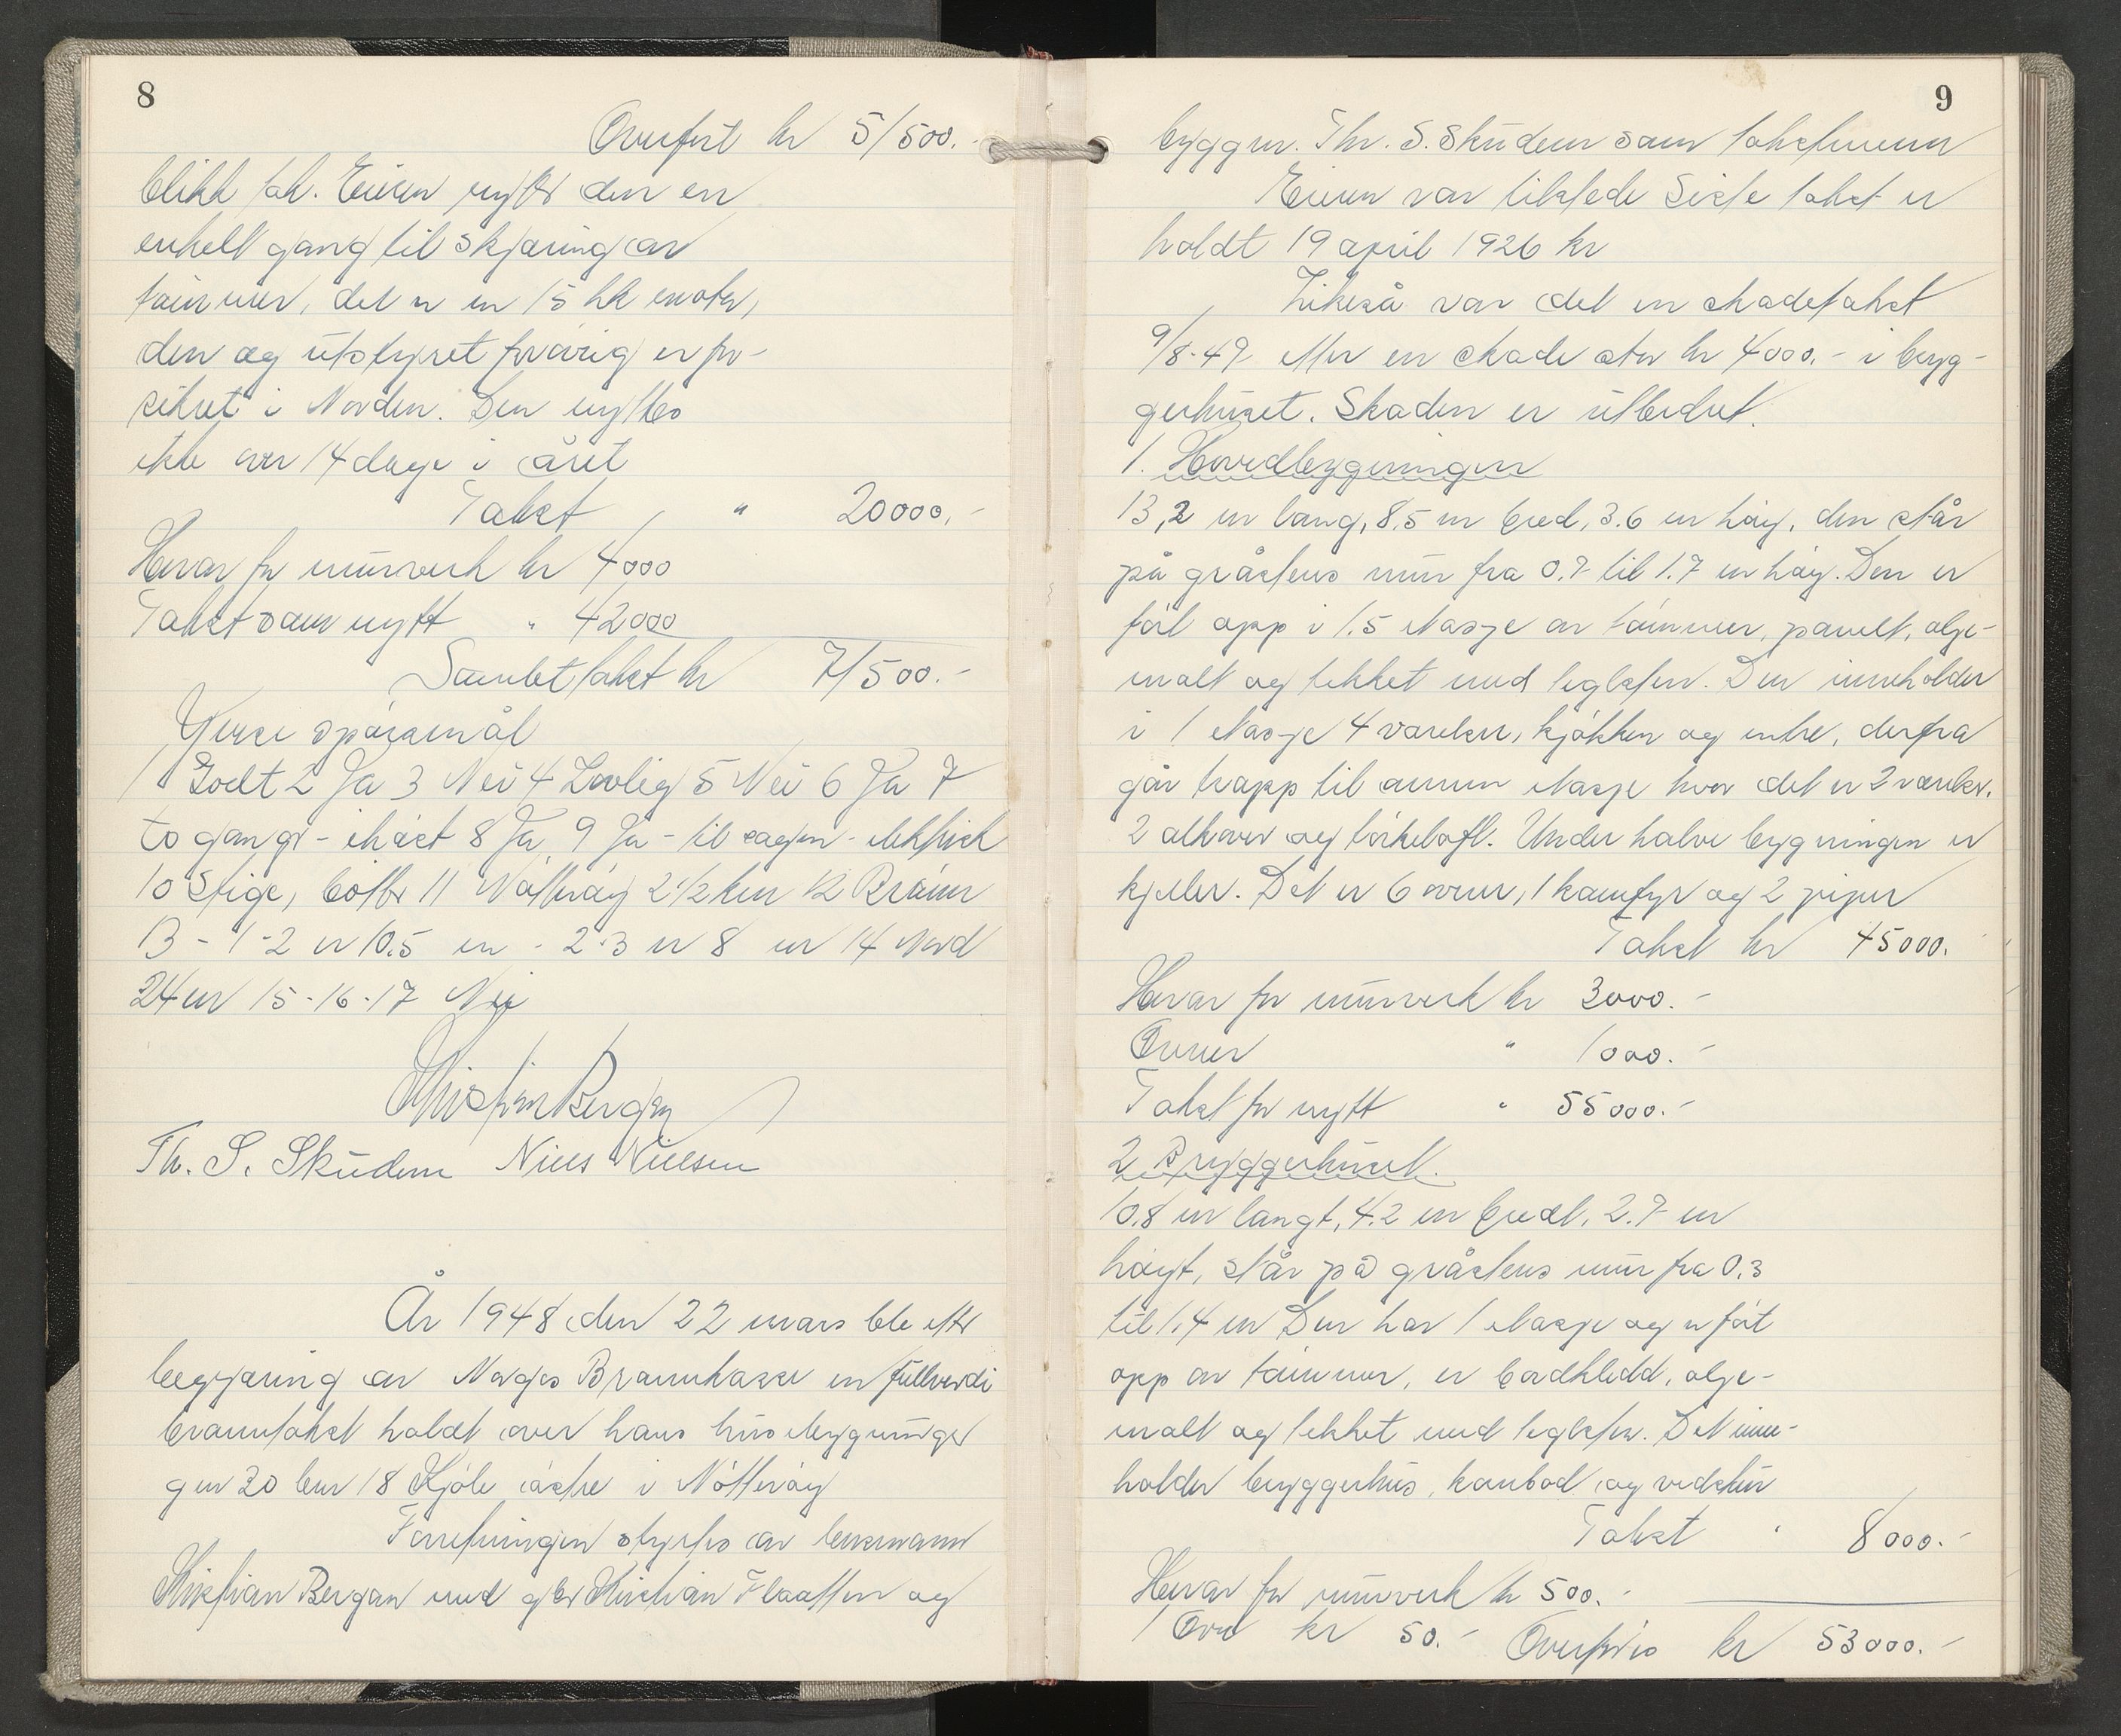 8
Overført kr 51500.-
blikk tak. Eieren nytter den en
enkelt gang til skjæring av
tømmer, det er en 15 hk motor,
den og utstyret forøvrig er for-
sikret i Norden. Den nyttes
ikke over 14 dage i året
Takst " 20000.-
Herav for murverk kr 4000
Takst som nytt " 42000
Samlet takst kr 71500.-
Ymse spørsmål
1 Godt 2 Ja 3 Nei 4 Lovlig 5 Nei 6 Ja 7
to gange - 8 Ja 9 Ja - til sagen - elektrisk
10 Stige, bøtter 11 Nøtterøy 2 1/2 km 12
13 - 1-2 er 10.5 m - 2-3 er 8 m 14 Nord
24 m 15-16-17 Nei
Kristian Bergan
Th. S. Skudem Niels Nielsen
År 1948 den 22 mars ble etter
begjæring av Norges Brannkasse en fullverdi
branntakst holdt over hans husebygninger
gnr 20 bnr 18 Kjøle østre i Nøtterøy
Forretningen styrtes av lensmann
Kristian Bergan med gbr Kristian Flaatten og
9
byggm. Thr. S. Skudem som takstmenn
Eieren var tilstede Siste takst er
holdt 19 april 1926 kr
Likeså var det en skadetakst
9/8-49 etter en skade stor kr 4000.- i bryg-
gerhuset. Skaden er utbedret.
1. Hovedbygningen
13,2 m lang, 8.5 m bred, 3.6 m høy, den står
på gråstens mur fra 0.7 til 1.7 m høy. Den er
ført opp i 1.5 etasje av tømmer, panelt, olje-
malt og tekket med teglsten. Den inneholder
i 1 etasje 4 værelser, kjøkken og entre, derfra
går trapp til annen etasje hvor det er 2 værelser.
2 alkover og tørkeloft. Under halve bygningen er
kjeller. Det er 6 ovner, 1 komfyr og 2 piper
Takst kr 45000.
Herav for murverk kr 3000.-
Ovner " 1000.-
Takst for nytt " 55000.-
2 Bryggerhuset.
10.8 m langt, 4.2 m bredt, 2.7 m
høyt, står på gråstens mur fra 0.3
til 1.4 m Den har 1 etasje og er ført
opp av tømmer, er bordkledd, olje-
malt og tekket med teglsten. Det inne-
holder bryggerhus, kovbod og vedskur
Takst " 8000.-
Herav for murverk kr 500.-
Ovn kr 50.- Overføres kr 53000.-